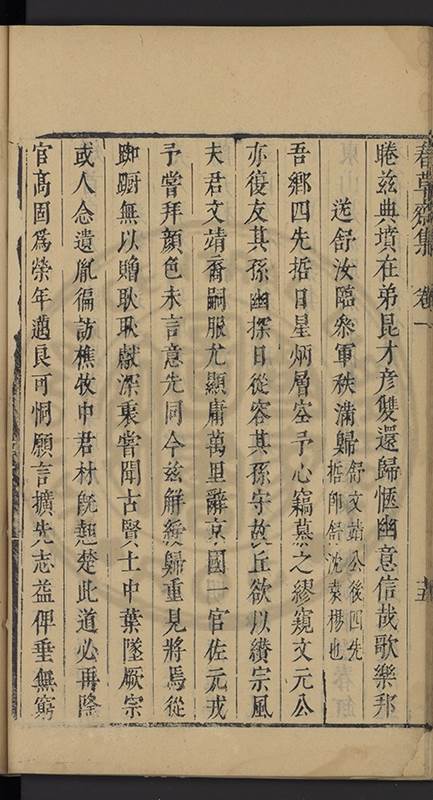 春草齋集 卷一 十五
睠兹典墳在弟昆才彥雙還歸愜幽意信哉歌樂邦
送舒汝臨參軍秩滿歸 舒文靖公後四先
哲即舒沈袁楊也
吾鄉四先哲日星炳層空予心竊慕之繆窺文元公
亦復友其孫幽探日從容其孫守故丘欲以纘宗風
夫君文靖裔嗣服尤顯庸萬里辭京國一官佐元戎
予嘗拜顏色未言意先同今兹解綬歸重見將焉從
踟蹰無以贈耿耿獻深衷嘗聞古賢士中葉墜厥宗
或人念遺胤徧訪樵牧中君材旣翹楚此道必再隆
官高固爲榮年邁良可恫願言擴先志益俾垂無窮